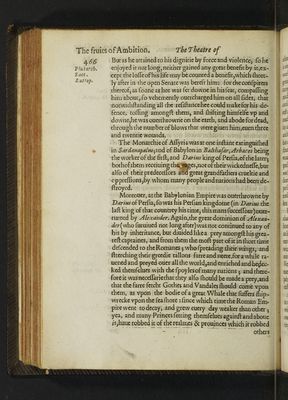 The fruits of Ambition. The Theatre of
466
Plutarch.
Suet.
Eutrop.
But as he attained to his dignitie by force and violence, so he
enioyed it not long, neither gained any great benefit by it, ex-
cept the losse of his life may be counted a benefit, which short-
ly after in the open Senate was bereft him: for the conspirators
thereof, as soone as hee was set downe in his seat, compassing
him about, so vehemently ouercharged him on all sides, that
notwithstanding all the resistance hee could make for his de-
fence, tossing amongst them, and shifting himselfe vp and
downe, he was ouerthrowne on the earth, and abode for dead,
through the number of blows that were giuen him, euen three
and twentie wounds.
The Monarchie of Assyria was at one instant extinguished
in Sardanapalus, and of Babylon in Balthasar, Arbaces being
the worker of the first, and Darius king of Persia, of the latter;
both of them receiuing the wages, not of their wickednesse, but
also of their predecessors great cruelties and
oppressions, by whom many people and nations had been de-
stroyed.
Moreouer, as the Babylonian Empire was ouerthrowne by
Darius of Persia, so was his Persian kingdome (in Darius the
last king of that countrey his time, this mans successor) ouer-
turned by Alexander. Again, the great dominion of Alexan-
der (who suruiued not long after) was not continued to any of
his by inheritance, but diuided like a prey amongst his great-
est captaines, and from them the most part of it in short time
descended to the Romanes; who spreading their wings, and
stretching their greedie tallons farre and neere, for a while ra-
uened and preyed ouer all the world, and enriched and bedec-
ked themselues with the spoyles of many nations; and there-
fore it was necessarie that they also should be made a prey, and
that the farre fetcht Gothes and Vandales should come vpon
them, as vpon the bodie of a great Whale that suffers ship-
wrecke vpon the sea shore: since which time the Roman Em-
pire went to decay, and grew euery day weaker than other;
yea, and many Princes setting themselues against and aboue
it, haue robbed it of the realmes & prouinces which it robbed
others